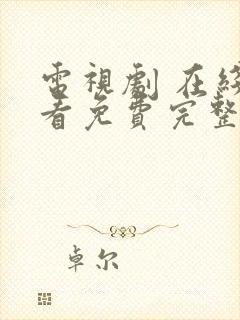 電視劇 在線
看免費完整
卓尔